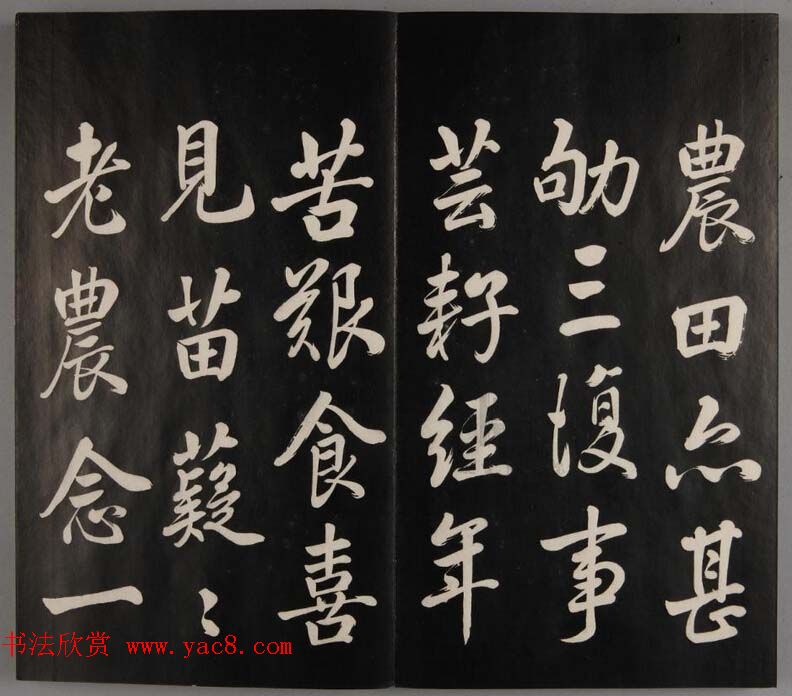 農田亦甚
劬三復事
芸耔經年
苦艱食喜
見苗薿〻
老農念一
书法欣赏 www.yac8.com